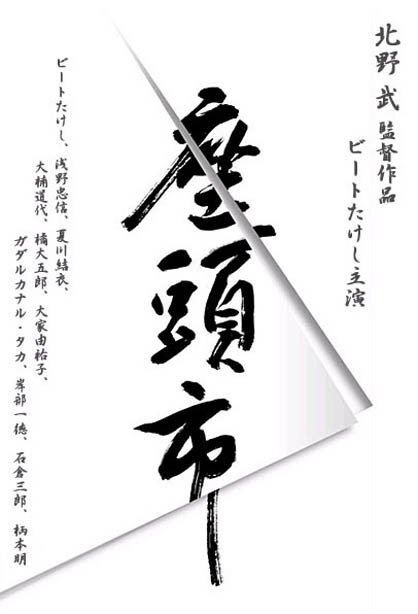 北野武監督作品
ビートたけし主演
座頭市
ビートたけし、浅野忠信、夏川結衣、
大楠道代、橘大五郎、大家由祐子、
ガダルカナル・タカ、岸部一徳、石倉三郎、柄本明